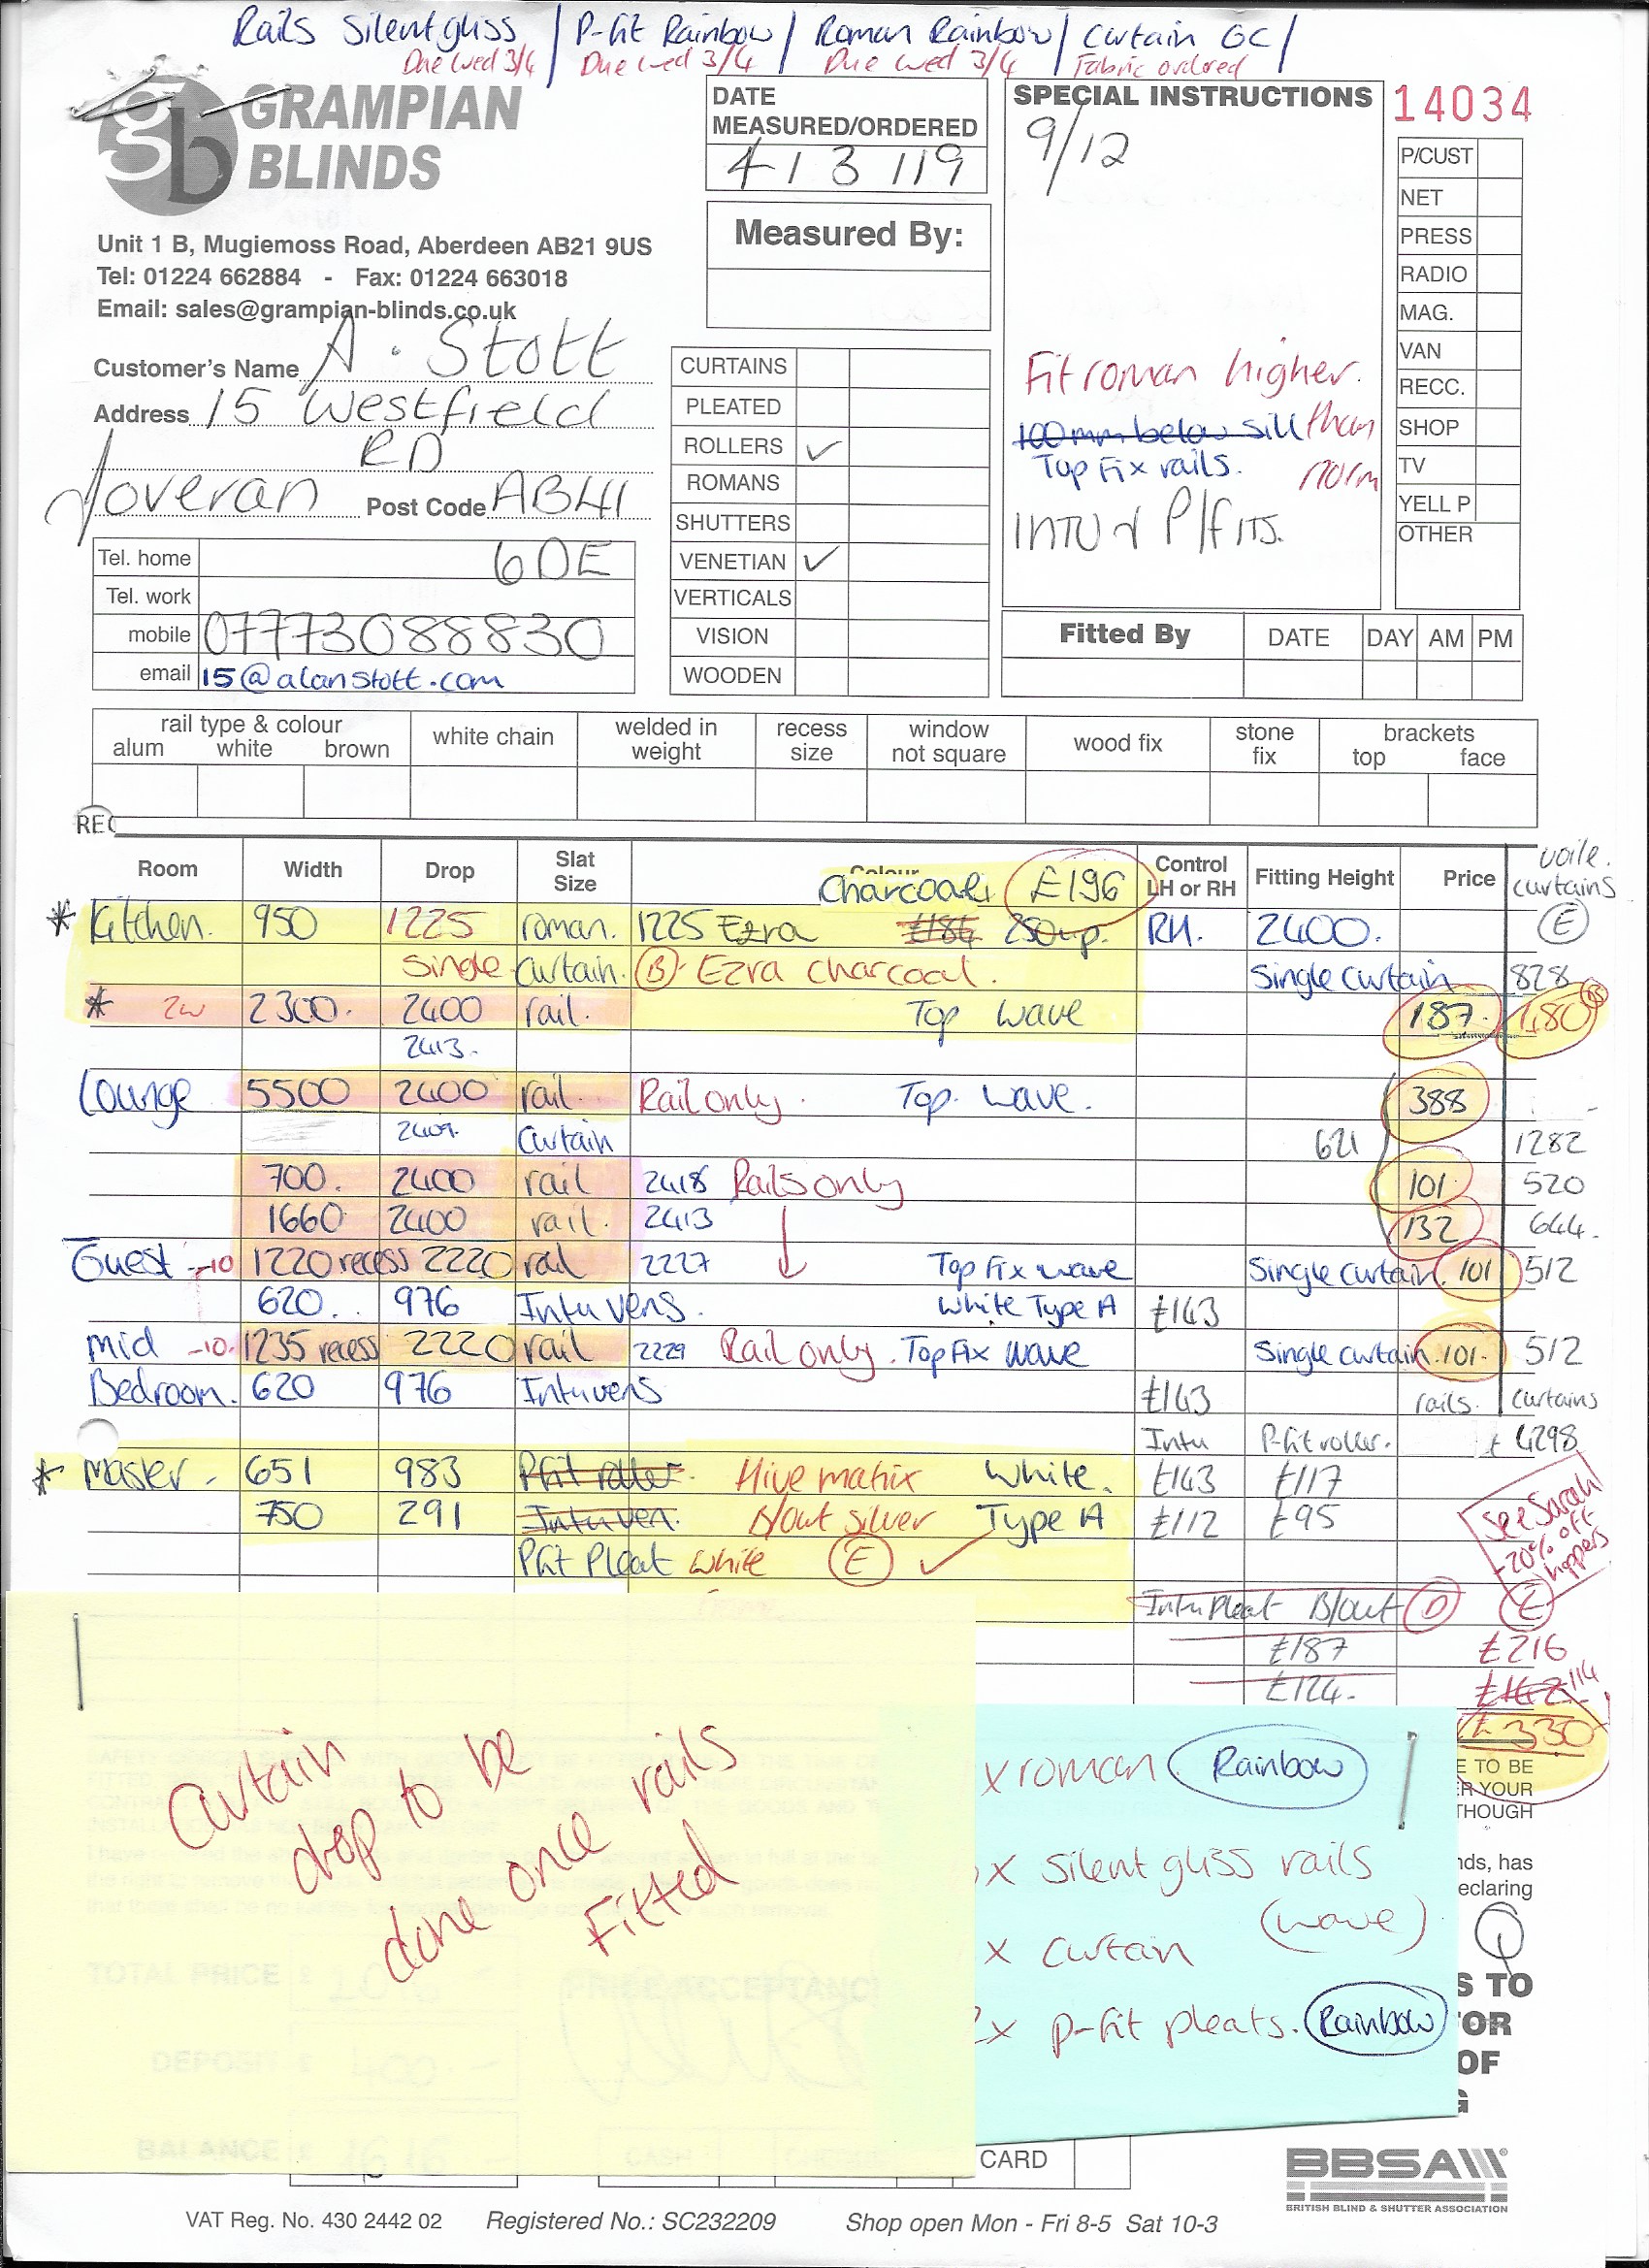 Rails Silentgliss / P-fit Rainbow / Roman Rainbow / Curtain GC /
Due wed 3/4 / Due wed 3/4 / Due wed 3/4 / Fabric ordered
gb GRAMPIAN
BLINDS
Unit 1 B, Mugiemoss Road, Aberdeen AB21 9US
Tel: 01224 662884 - Fax: 01224 663018
Email: sales@grampian-blinds.co.uk
Customer's Name A. Stott
Address 15 Westfield
RD
foveran Post Code AB41
6DE
Tel. home
Tel. work
mobile 07773088830
email 15@alanstott.com
DATE
MEASURED/ORDERED
4 / 3 / 19
Measured By:
CURTAINS
PLEATED
ROLLERS ✓
ROMANS
SHUTTERS
VENETIAN ✓
VERTICALS
VISION
WOODEN
SPECIAL INSTRUCTIONS
9/12
Fit roman higher
100mm below sill than
Top Fix rails. norm
INTU & P/FITS.
Fitted By DATE DAY AM PM
14034
P/CUST
NET
PRESS
RADIO
MAG.
VAN
RECC.
SHOP
TV
YELL P
OTHER
rail type & colour
alum white brown
white chain
welded in
weight
recess
size
window
not square
wood fix
stone
fix
brackets
top face
REC
Room Width Drop Slat Size Colour Control LH or RH Fitting Height Price voile. curtains
Charcoal £196
* Kitchen. 950 1225 roman. 1225 Ezra £184 RH. 2400. E
Single Curtain. B Ezra charcoal. Single curtain 828
* 2w 2300. 2400 rail. Top Wave 187. 480
2413.
Lounge 5500 2400 rail. Rail only. Top. Wave. 388
2409. Curtain 621 1282
700. 2400 rail 2418 Rails only 101 520
1660 2400 rail. 2413 132 644.
Guest -10 1220 recess 2220 rail 2227 Top Fix wave Single curtain. 101 512
620.. 976 Intu Vens. White Type A £143
Mid -10. 1235 recess 2220 rail 2229 Rail only. Top Fix Wave Single curtain. 101. 512
Bedroom. 620 976 Intu vens £143 rails. Curtains
Intu P-fit roller. £ 4298
* Master - 651 983 Pfit roller. Hive matrix White. £143 £117
750 291 Intu Ven. B/out silver Type A £112 £95
Pfit Pleat White E ✓
See Sarah
-20% off
hippers
Intu Pleat B/out D E
£187 £216
£124. £142 114
£330
Curtain
drop to be
done once rails
Fitted
x roman Rainbow
x silent gliss rails
(wave)
x curtain
2x p-fit pleats. Rainbow
E TO BE
ER YOUR
THOUGH
nds, has
eclaring
S TO
OR
OF
G
TOTAL PRICE £
PRICE ACCEPTANC
DEPOSIT £ 400
BALANCE £ 1616
CASH
CARD
BBSA
BRITISH BLIND & SHUTTER ASSOCIATION
VAT Reg. No. 430 2442 02 Registered No.: SC232209 Shop open Mon - Fri 8-5 Sat 10-3